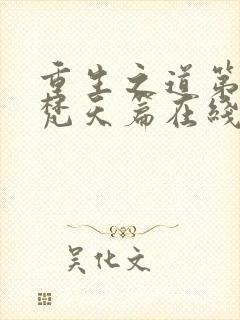 重生之道第
梵天篇在线
吴化文